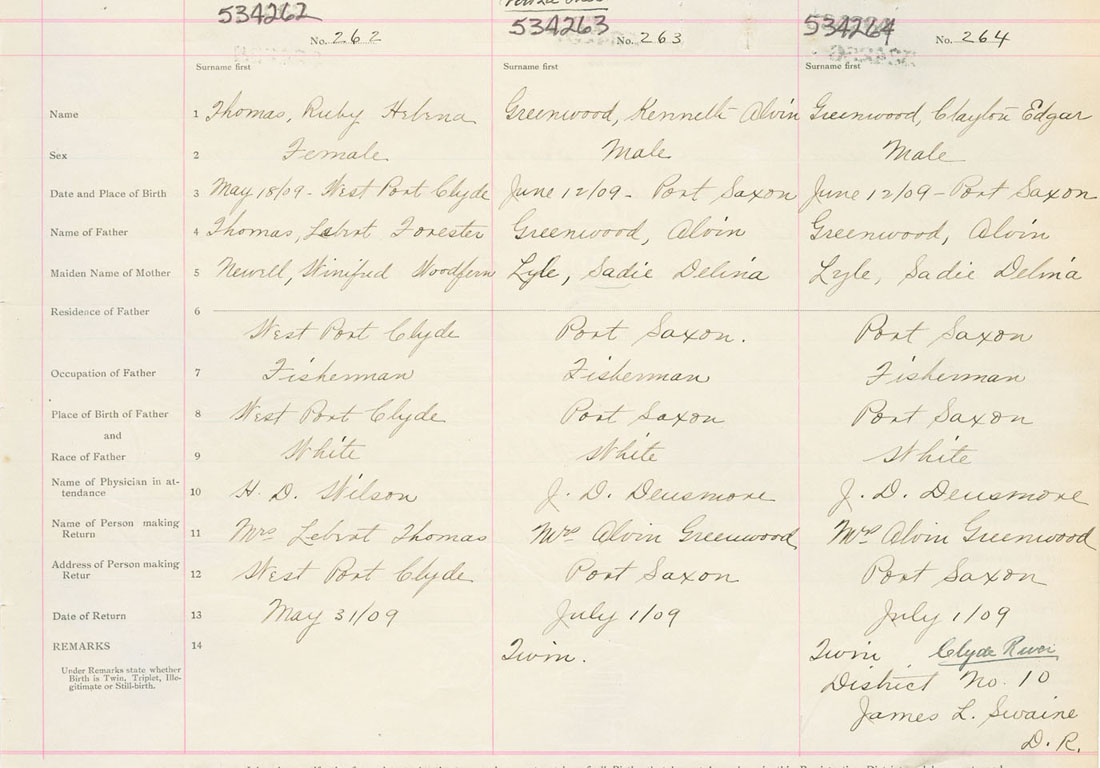 534262 534263 534264
No. 262 No. 263 No. 264
Surname first Surname first Surname first
Name 1 Thomas, Ruby Helena Greenwood, Kenneth Alvin Greenwood, Clayton Edgar
Sex 2 Female Male Male
Date and Place of Birth 3 May 18/09 - West Port Clyde June 12/09 - Port Saxon June 12/09 - Port Saxon
Name of Father 4 Thomas, Lebert Forester Greenwood, Alvin Greenwood, Alvin
Maiden Name of Mother 5 Newell, Winifred Lyle, Sadie Delina Lyle, Sadie Delina
Residence of Father 6
West Port Clyde Port Saxon. Port Saxon
Occupation of Father 7 Fisherman Fisherman Fisherman
Place of Birth of Father 8 West Port Clyde Port Saxon Port Saxon
and
Race of Father 9 White White White
Name of Physician in at-
tendance 10 H. D. Wilson J. D. Densmore J. D. Densmore
Name of Person making
Return 11 Mrs Lebert Thomas Mrs Alvin Greenwood Mrs Alvin Greenwood
Address of Person making
Retur 12 West Port Clyde Port Saxon Port Saxon
Date of Return 13 May 31/09 July 1/09 July 1/09
REMARKS 14 Twin. Twin Clyde River
Under Remarks state whether
Birth is Twin, Triplet, Ille-
gitimate or Still-birth.
District No. 10
James L. Swaine
D. R.